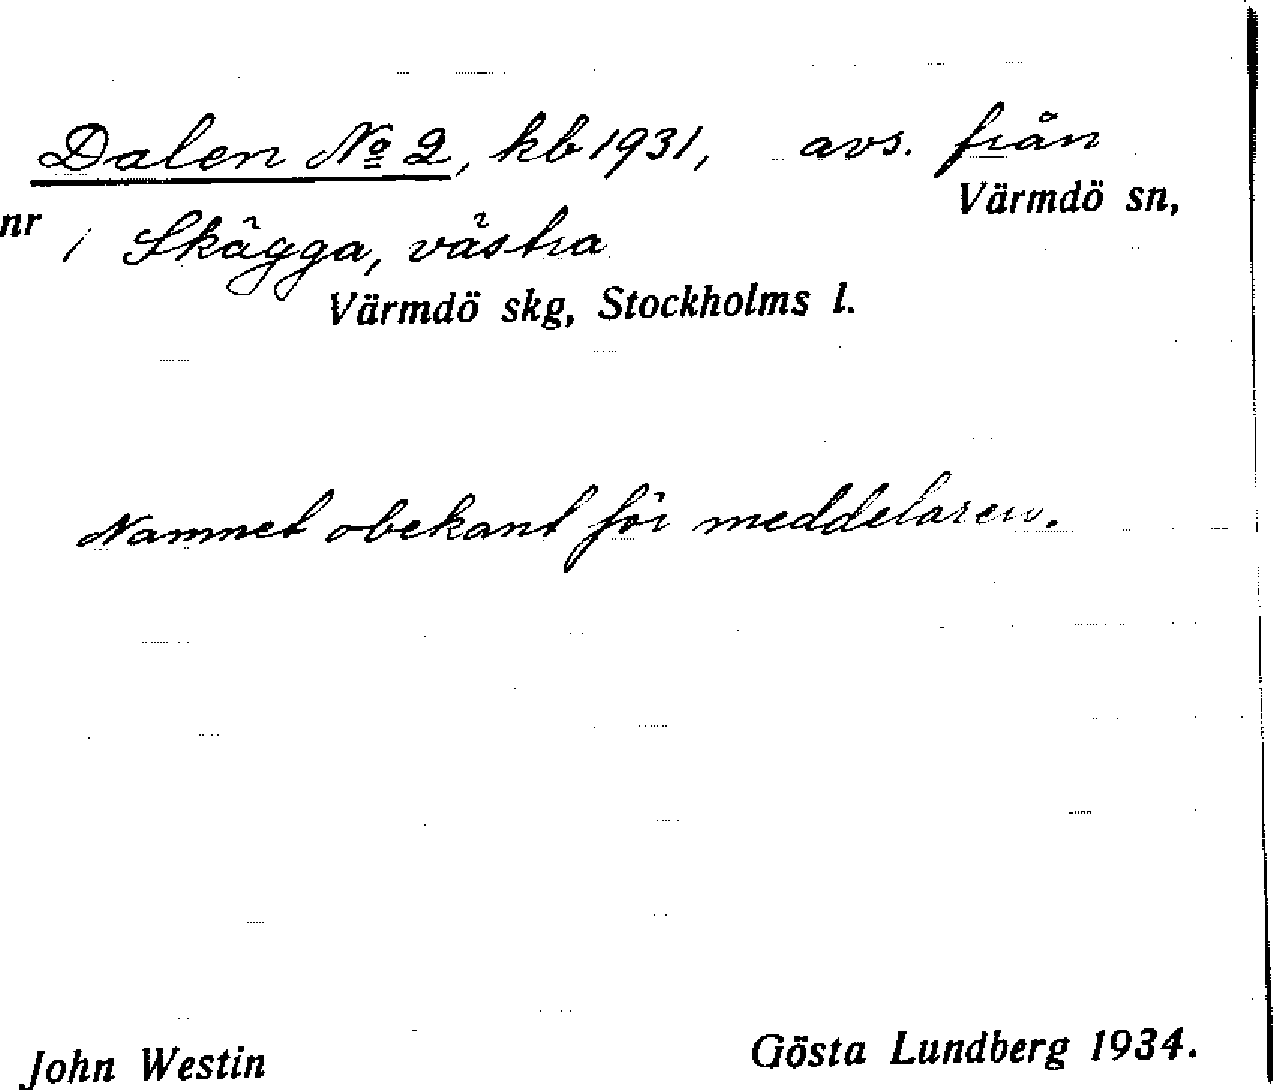 Dalen № 2, kb 1931, avs. från
Värmdö sn,
nr 1 Skägga, västra
Värmdö skg, Stockholms l.
Namnet obekant för meddelaren.
John Westin Gösta Lundberg 1934.